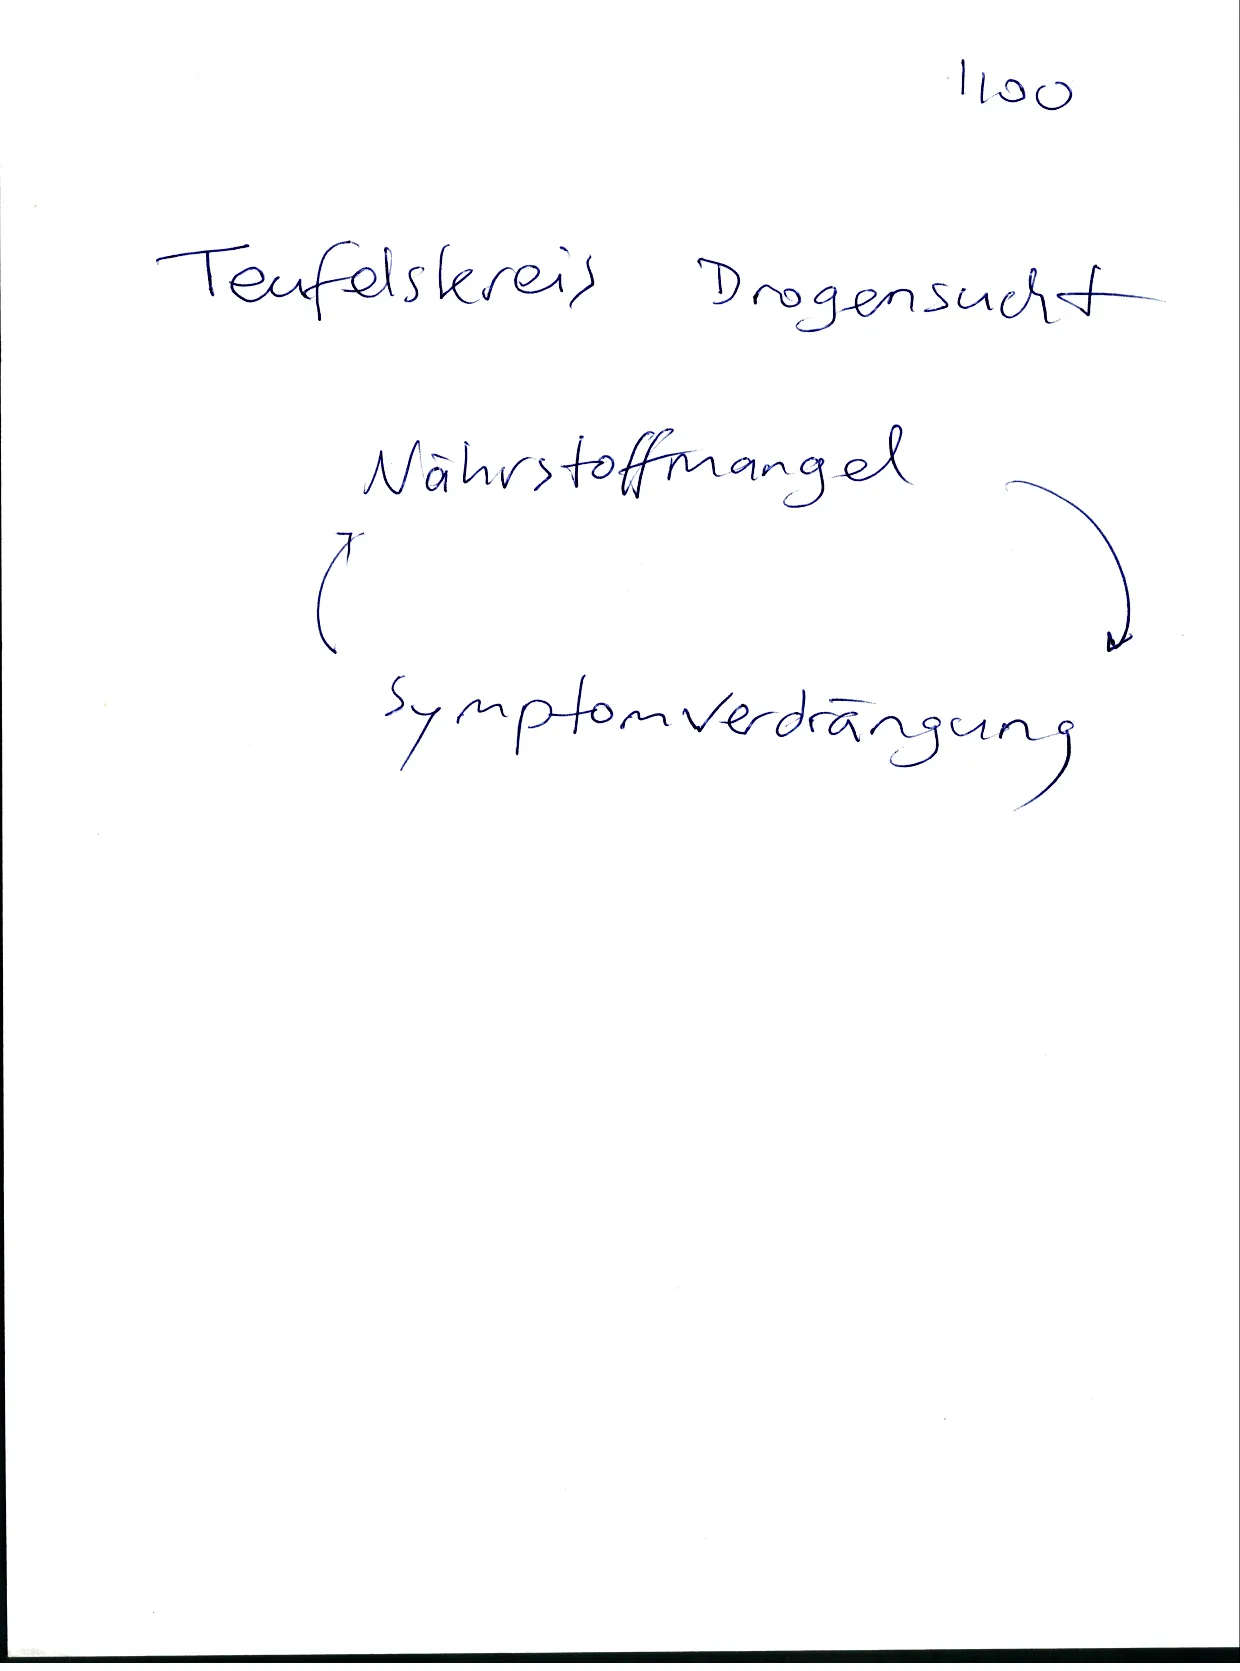 1100
Teufelskreis Drogensucht
Nährstoffmangel
Symptomverdrängung